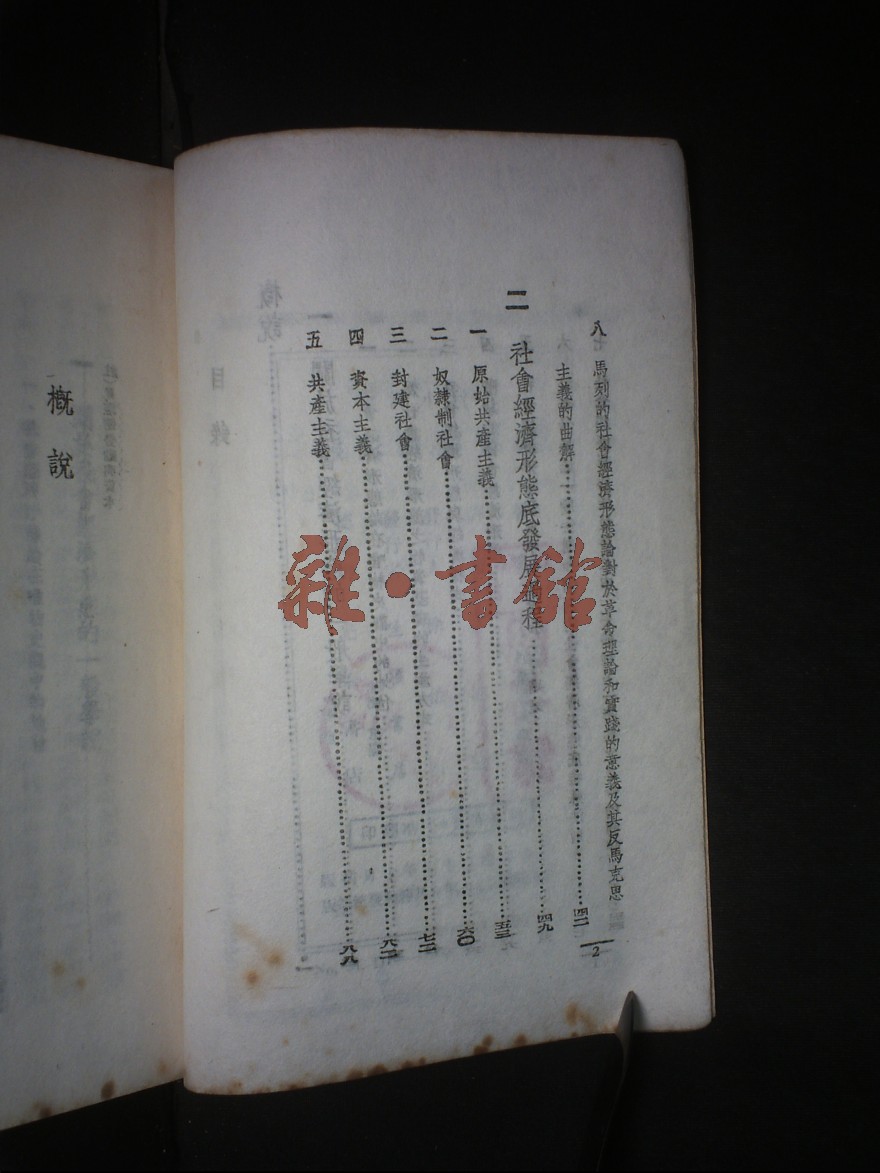 八 馬列的社會經濟形態論對於革命理論和實踐的意義及其反馬克思
主義的曲解……四二
二 社會經濟形態底發展過程……四九
一 原始共產主義……五三
二 奴隸制社會……六〇
三 封建社會……七二
四 資本主義……八二
五 共產主義……八八
2
槪說
雜·書館